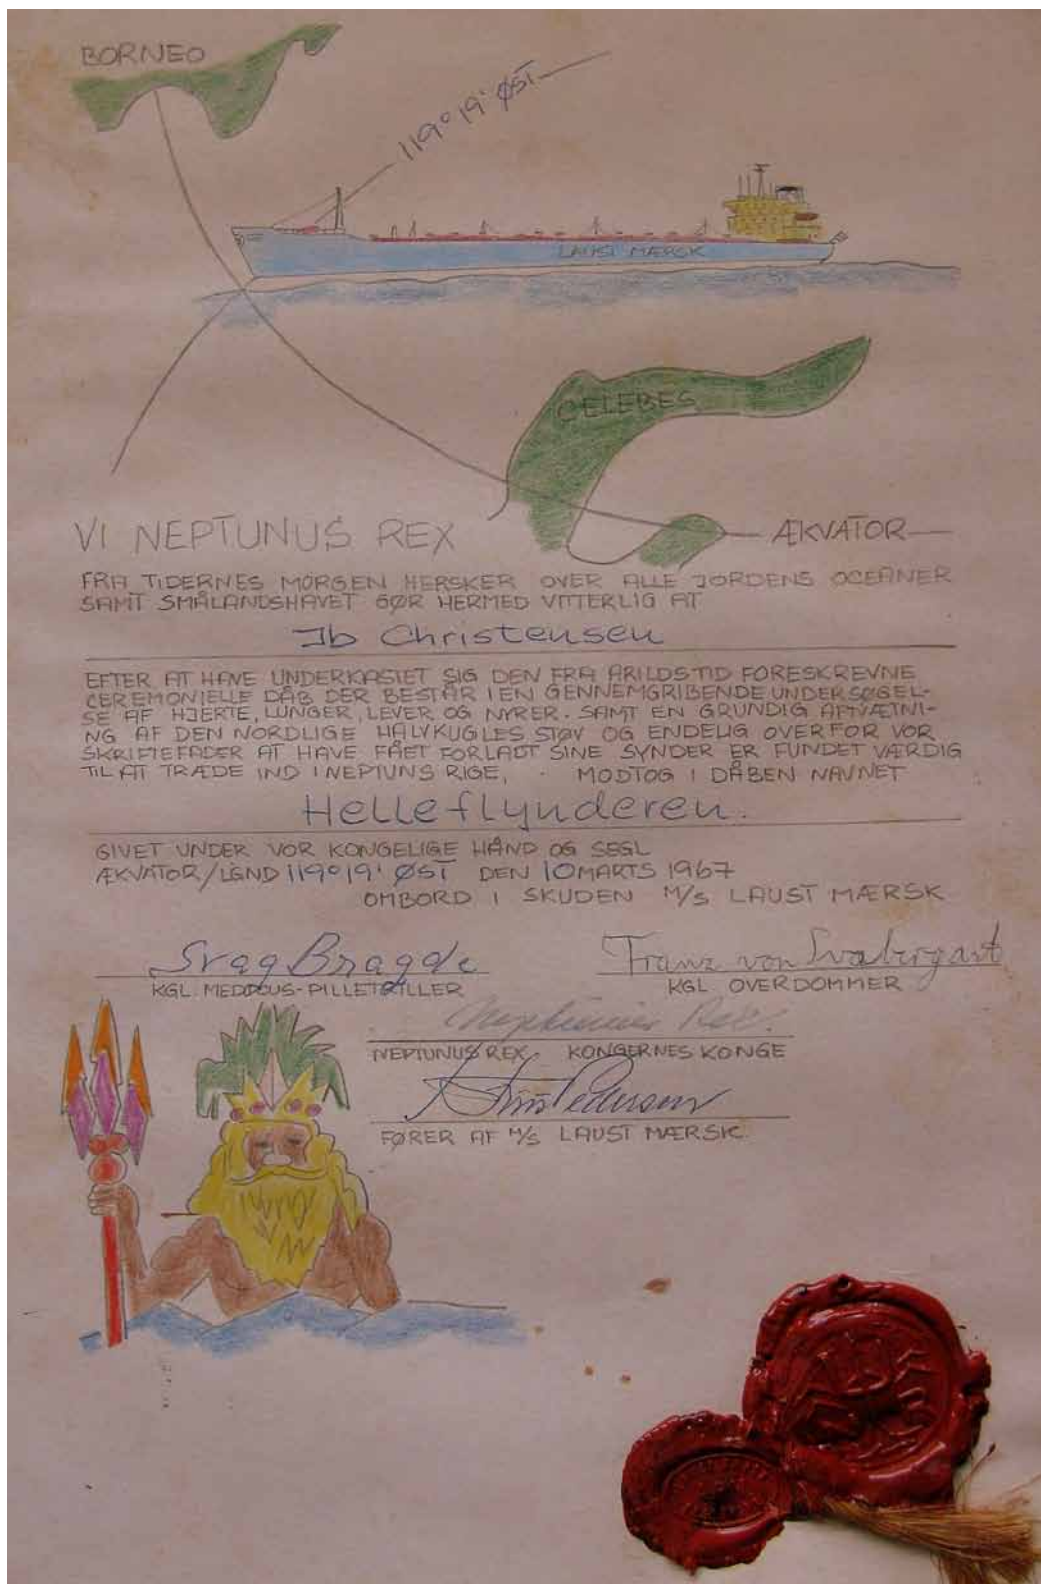 BORNEO
119° 19' ØST
LAUST MÆRSK
CELEBES
ÆKVATOR
VI NEPTUNUS REX
FRA TIDERNES MORGEN HERSKER OVER ALLE JORDENS OCEANER
SAMT SMÅLANDSHAVET GØR HERMED VITTERLIG AT
Ib Christensen
EFTER AT HAVE UNDERKASTET SIG DEN FRA ARILDSTID FORESKREVNE
CEREMONIELLE DÅB DER BESTÅR I EN GENNEMGRIBENDE UNDERSØGEL-
SE AF HJERTE, LUNGER, LEVER OG NYRER. SAMT EN GRUNDIG AFTVÆTNI-
NG AF DEN NORDLIGE HALVKUGLES STØV OG ENDELIG OVERFOR VOR
SKRIFTEFADER AT HAVE FÅET FORLADT SINE SYNDER ER FUNDET VÆRDIG
TIL AT TRÆDE IND I NEPTUNS RIGE, MODTOG I DÅBEN NAVNET
Helleflynderen.
GIVET UNDER VOR KONGELIGE HÅND OG SEGL
ÆKVATOR/LGND 119° 19' ØST DEN 10 MARTS 1967
OMBORD I SKUDEN M/S LAUST MÆRSK
Svag Bragde Franz von
KGL. MEDICUS-PILLETRILLER KGL OVERDOMMER
Neptunus Rex.
NEPTUNUS REX KONGERNES KONGE
Pedersen
FØRER AF M/S LAUST MÆRSK